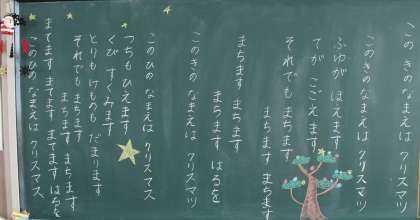 この きの なまえは
このきのなまえは クリスマツ
ふゆが ほえます
てが こごえます
それでも まちます
まちます まちます
まちます まちます
まちます はるを
このきの なまえは クリスマツ
このひの なまえは クリスマス
つちもひえます
くび すくみます
とりも けものも だまります
それでも まちます
まちます まちます
まてます まてます まてます はるを
このひの なまえは クリスマス